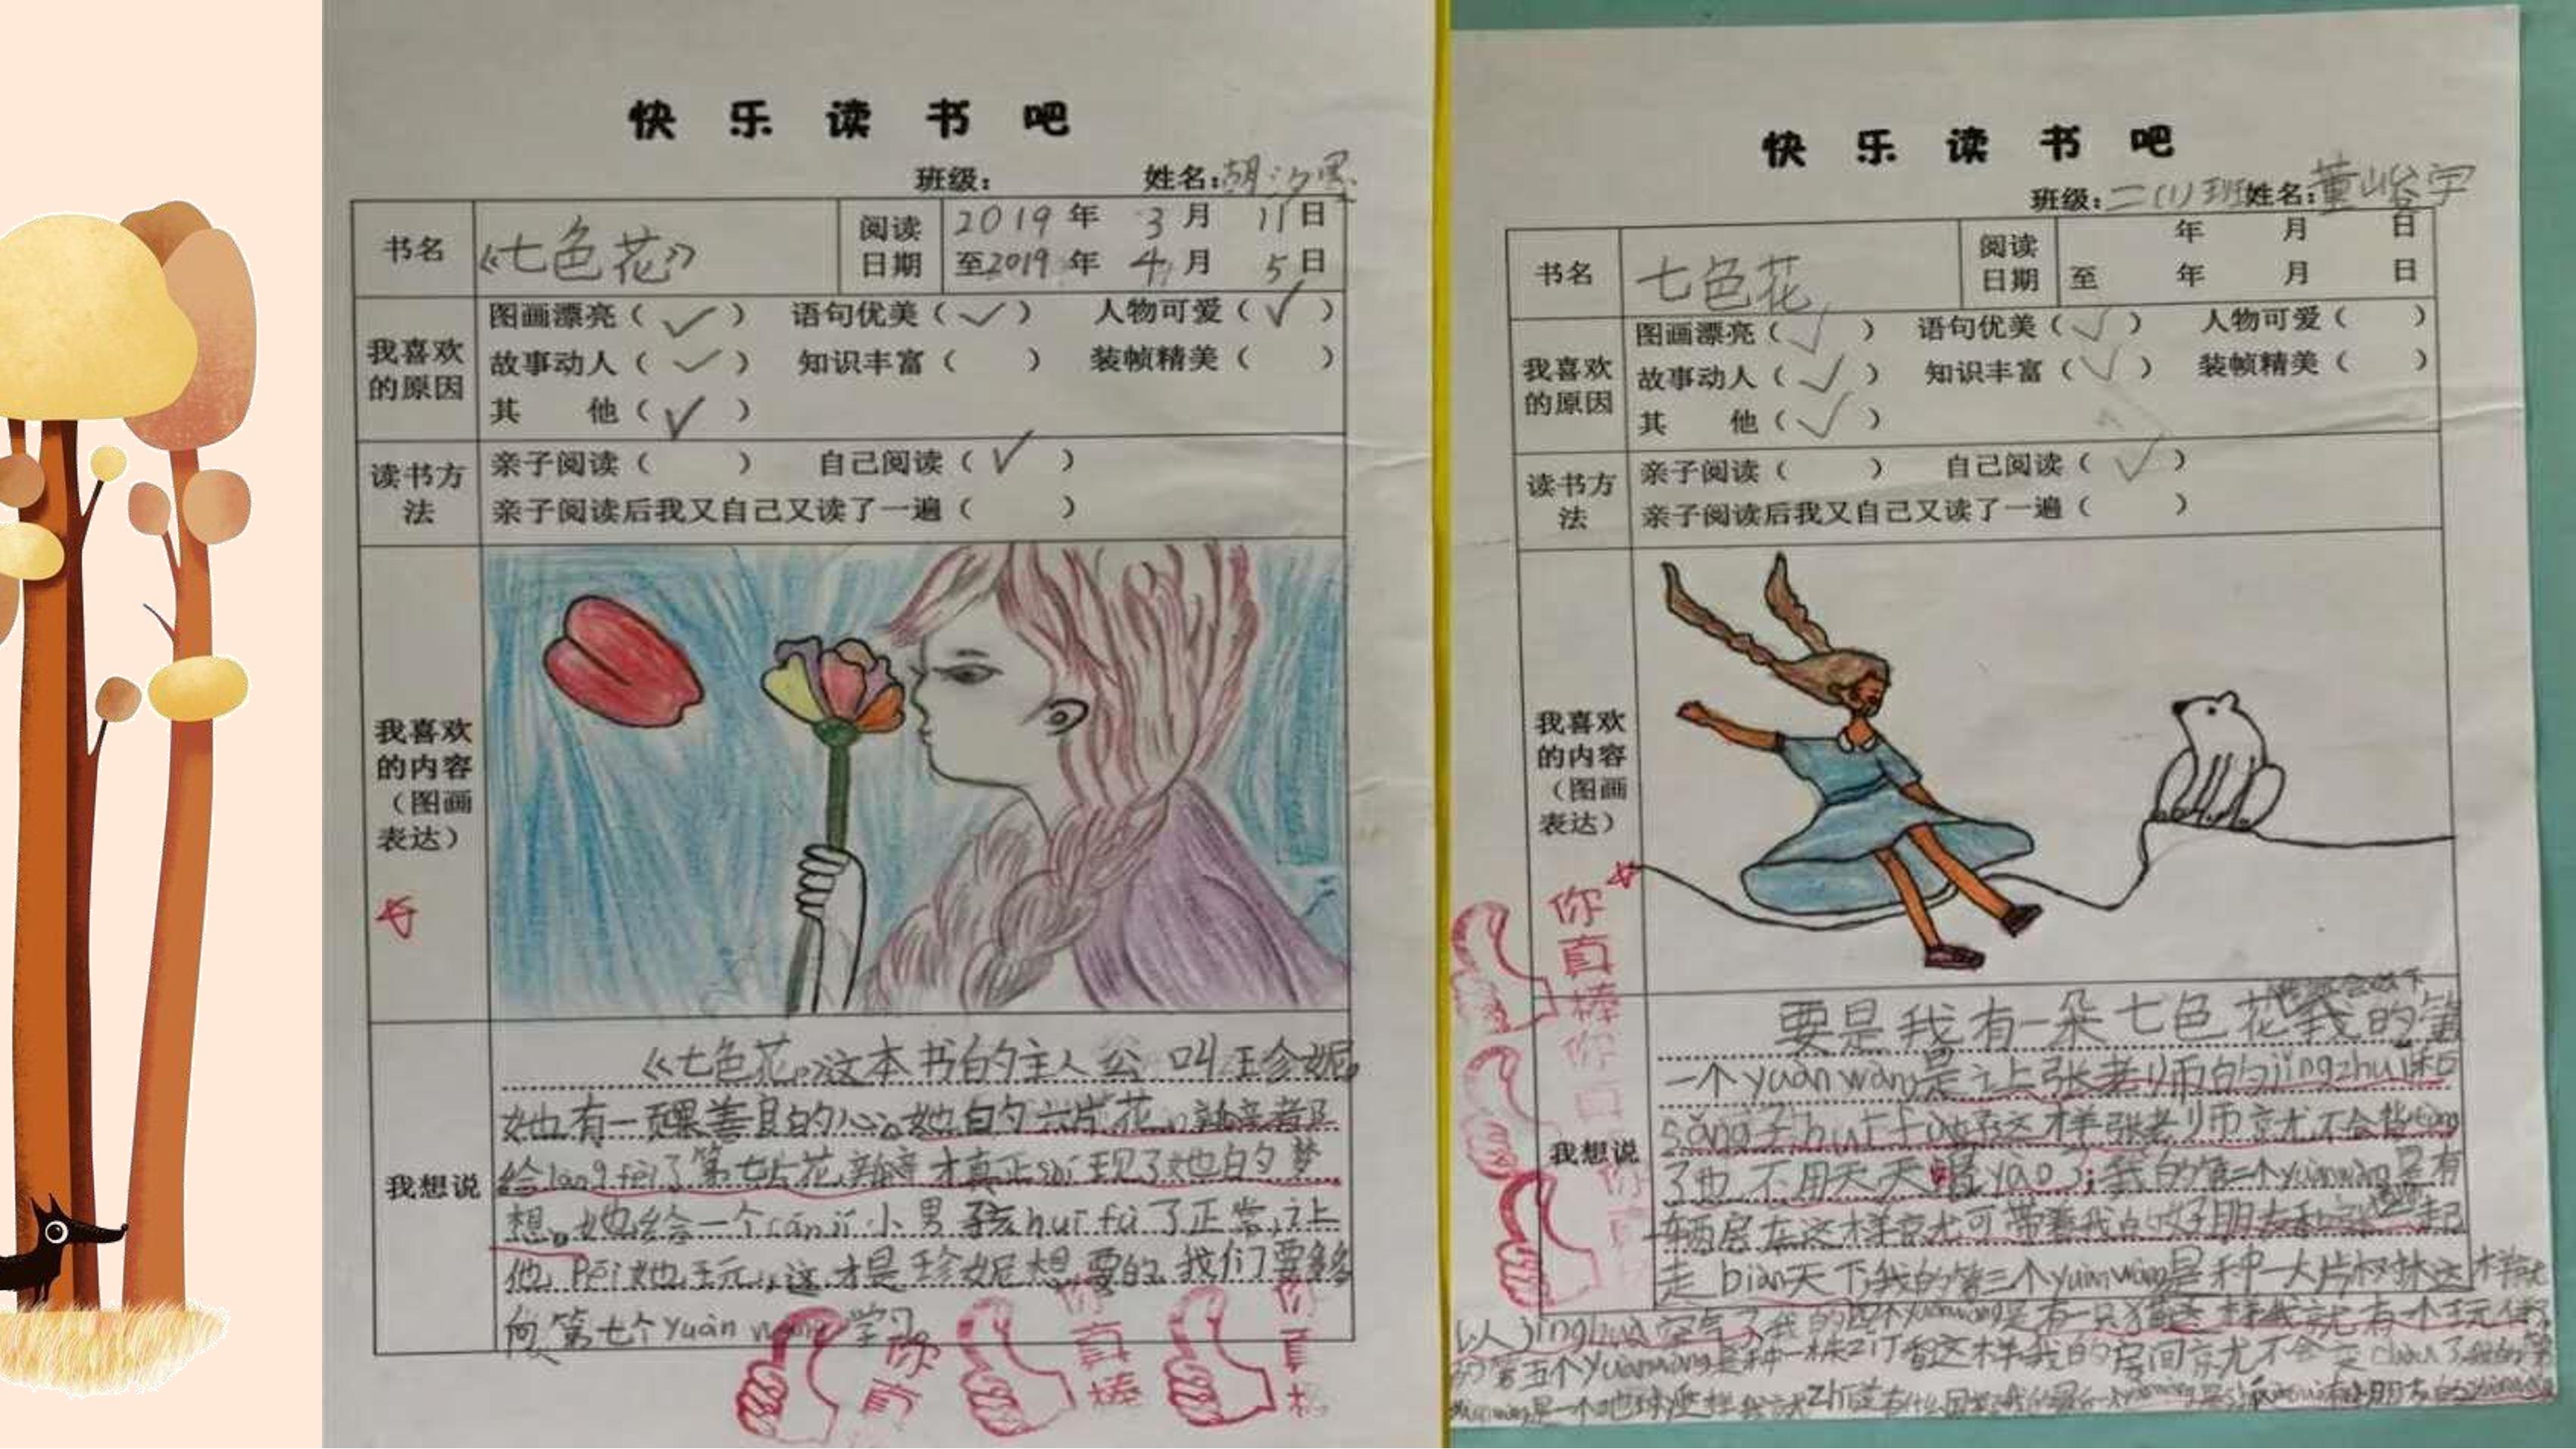 快乐读书吧
班级： 姓名：胡汐墨
书名 《七色花》 阅读日期 2019年 3月 11日
至2019年 4月 5日
我喜欢的原因
图画漂亮（✓） 语句优美（✓） 人物可爱（✓）
故事动人（✓） 知识丰富（ ） 装帧精美（ ）
其 他（✓）
读书方法
亲子阅读（ ） 自己阅读（✓）
亲子阅读后我又自己又读了一遍（ ）
我喜欢的内容（图画表达）
我想说
《七色花》这本书的主人公叫王珍妮。
她有一颗善良的心。她的六片花瓣都
给lang fèi了第七片花瓣才真正shí现了她的梦
想。她给一个cán jí小男孩huī fù了正常，让
他péi她玩，这才是珍妮想要的。我们要多多
向第七个yuàn 学习
你真棒
你真棒
你真
快乐读书吧
班级：二(1)班 姓名：董峪宇
书名 七色花 阅读日期 年 月 日
至 年 月 日
我喜欢的原因
图画漂亮（✓） 语句优美（✓） 人物可爱（ ）
故事动人（✓） 知识丰富（✓） 装帧精美（ ）
其 他（✓）
读书方法
亲子阅读（ ） 自己阅读（✓）
亲子阅读后我又自己又读了一遍（ ）
我喜欢的内容（图画表达）
你真棒
我想说
要是我有一朵七色花我的第
一个yuàn wàng是让上张老师的jǐng zhuī和
sǎng子huī fù 这样张老师就不会 tòng
了也不用天天喝yào了；我的第二个yuàn wàng是有
一辆房车这样就可带着我的好朋友和 一起
走biàn天下我的第三个yuàn wàng是种一大片树林这样就
以jìng huà空气了我的四个yuàn wàng是有一只猫这样我就有个玩伴
的第五个yuàn wàng是种一株 这样我的房间就不会 chòu了我的第
是一个地球 这样我就 zhī道有什么国